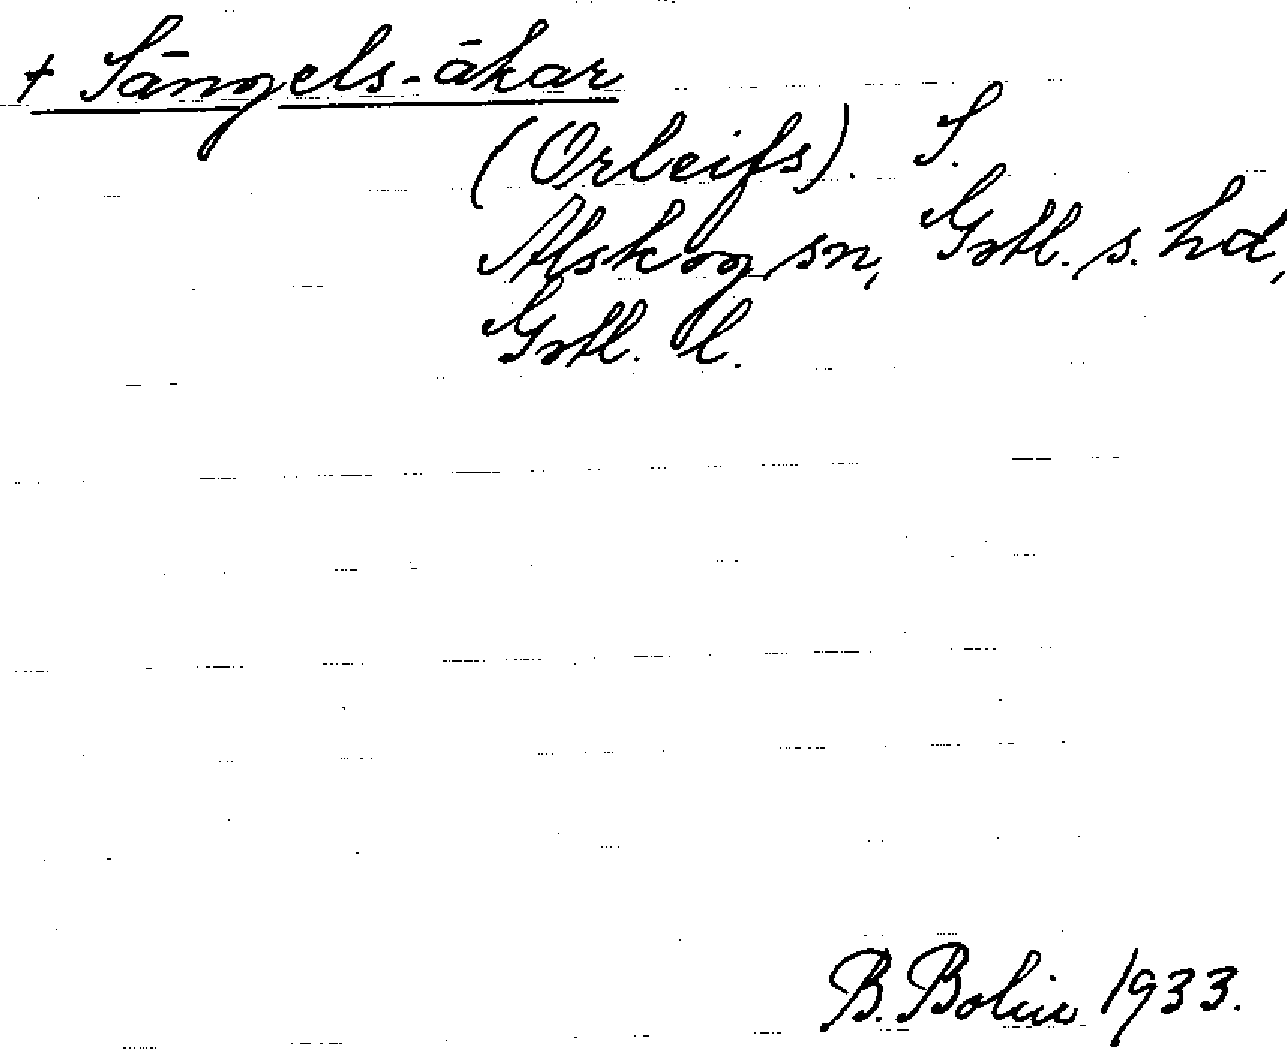 + Sängels-åkar
(Orleifs). S.
Alskog sn, Gotl. s. hd,
Gotl. l.
B. Bolin 1933.